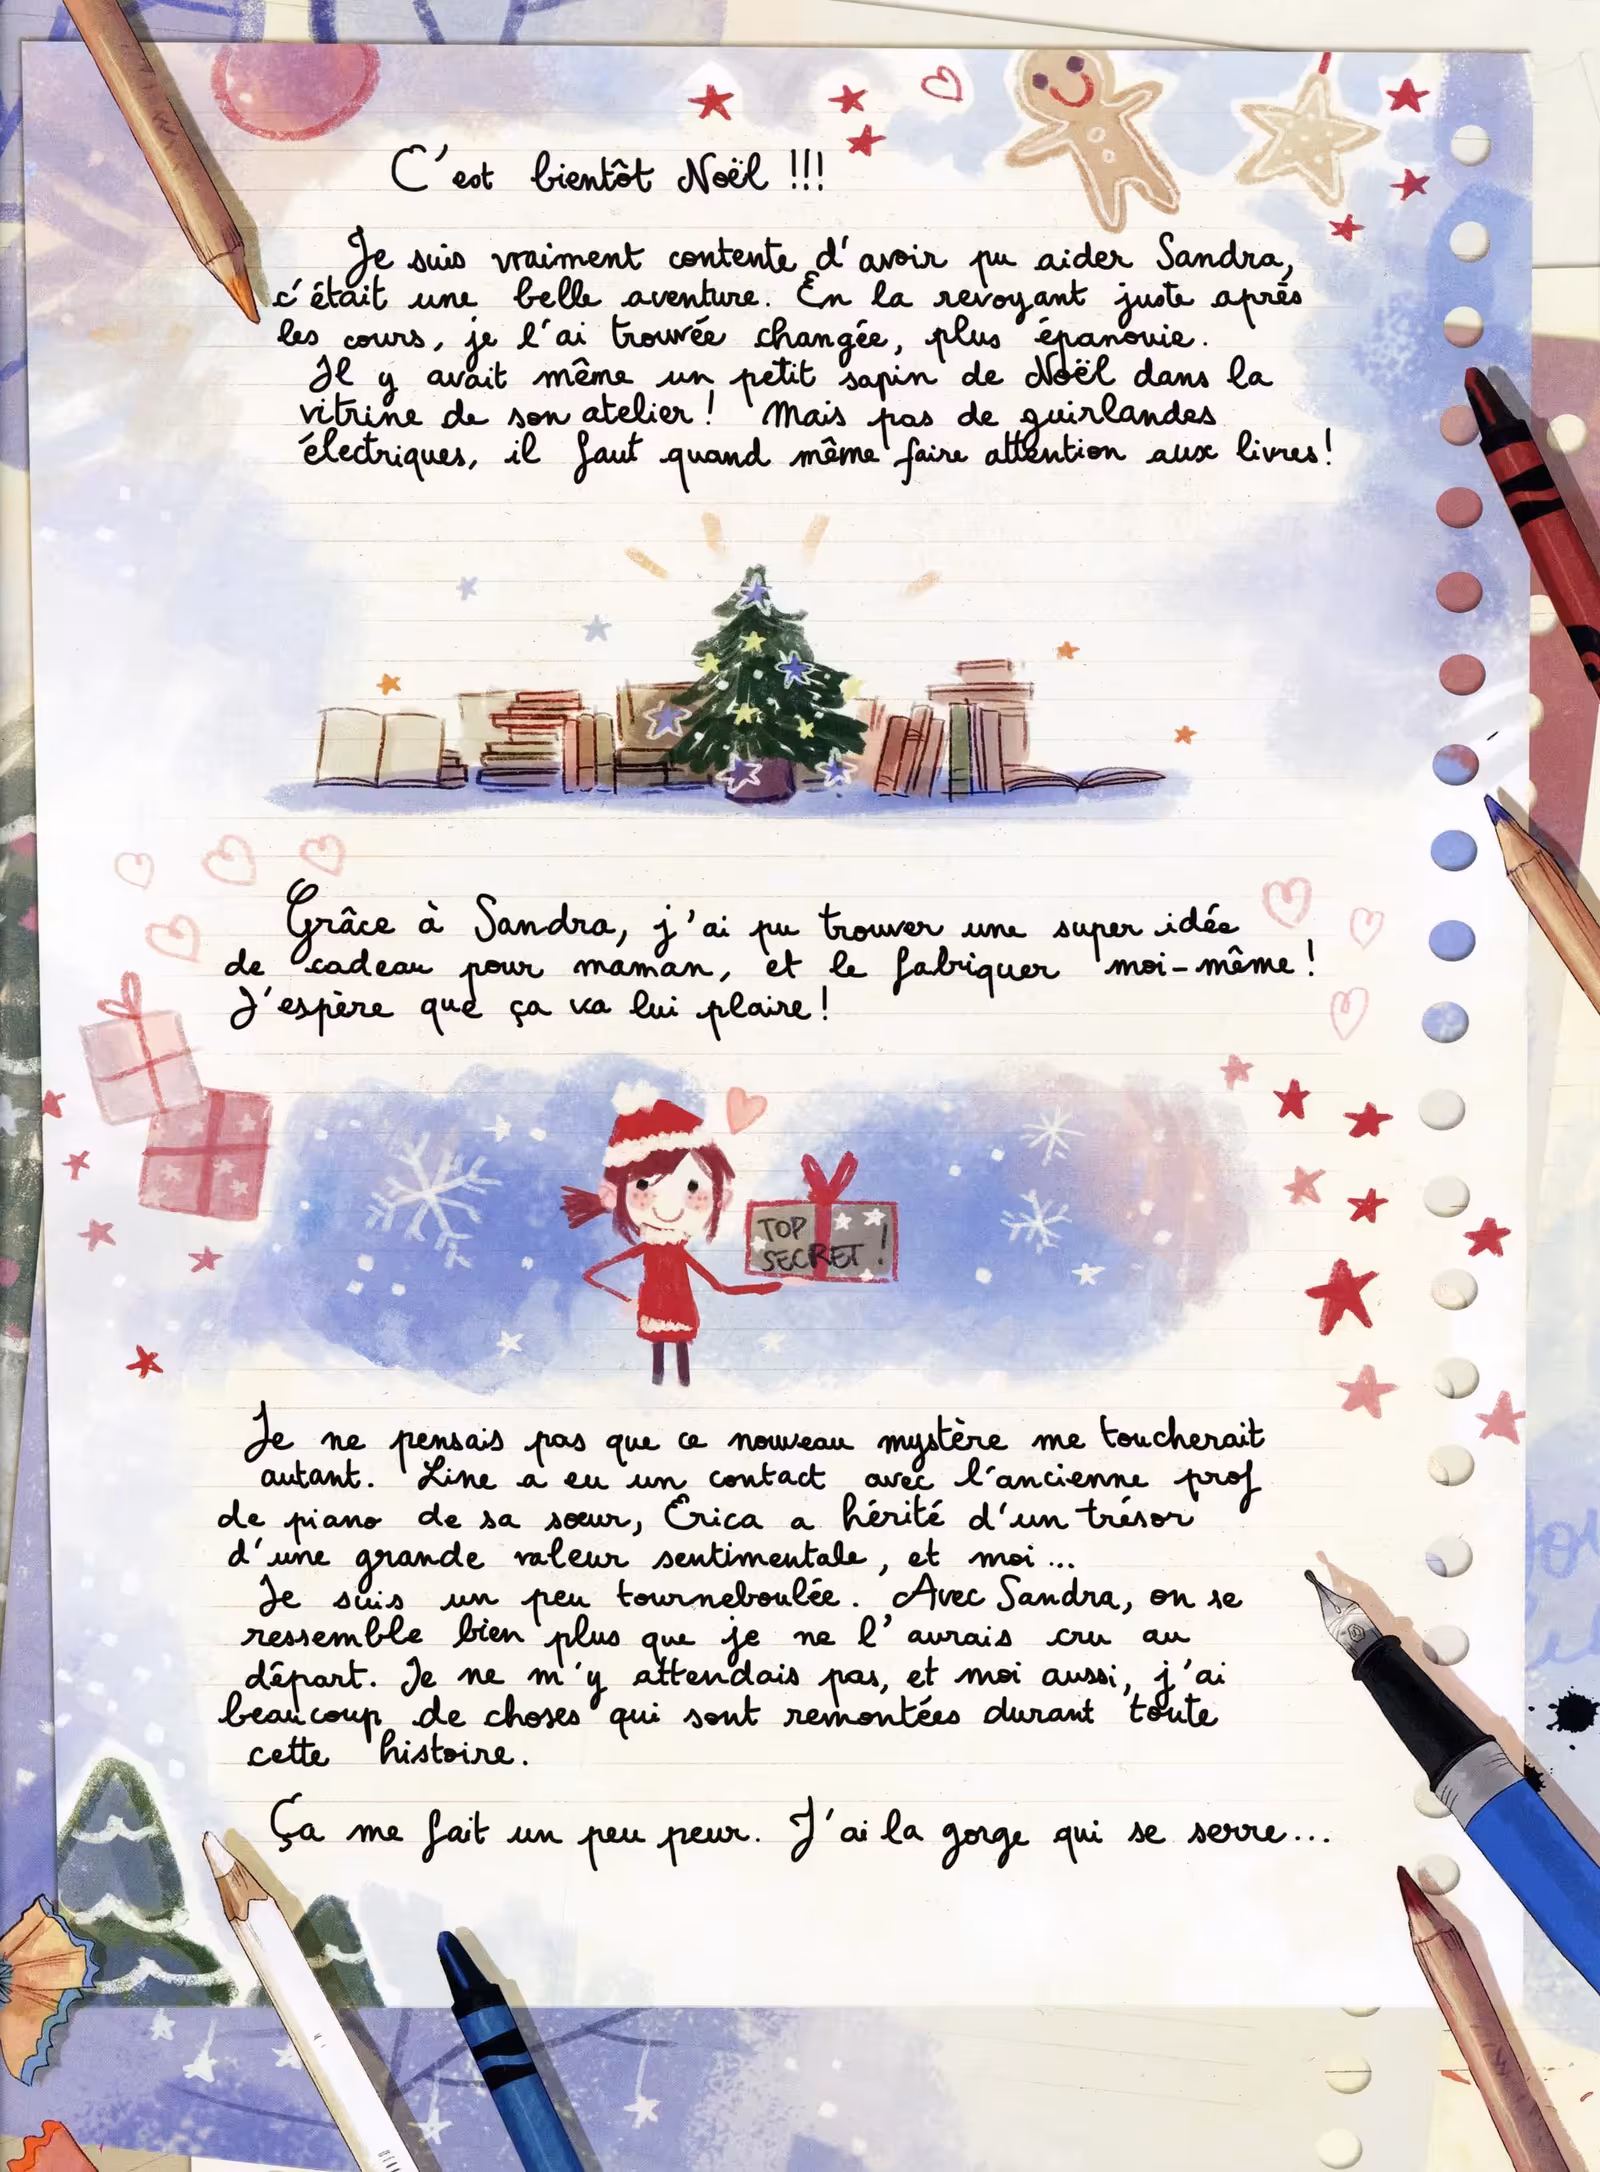 C'est bientôt Noël !!!
Je suis vraiment contente d'avoir pu aider Sandra,
c'était une belle aventure. En la revoyant juste après
les cours, je l'ai trouvée changée, plus épanouie.
Il y avait même un petit sapin de Noël dans la
vitrine de son atelier ! Mais pas de guirlandes
électriques, il faut quand même faire attention aux livres !
Grâce à Sandra, j'ai pu trouver une super idée
de cadeau pour maman, et le fabriquer moi-même !
J'espère que ça va lui plaire !
TOP
SECRET !
Je ne pensais pas que ce nouveau mystère me toucherait
autant. Line a eu un contact avec l'ancienne prof
de piano de sa sœur, Erica a hérité d'un trésor
d'une grande valeur sentimentale, et moi...
Je suis un peu tourneboulée. Avec Sandra, on se
ressemble bien plus que je ne l'aurais cru au
départ. Je ne m'y attendais pas, et moi aussi, j'ai
beaucoup de choses qui sont remontées durant toute
cette histoire.
Ça me fait un peu peur. J'ai la gorge qui se serre...